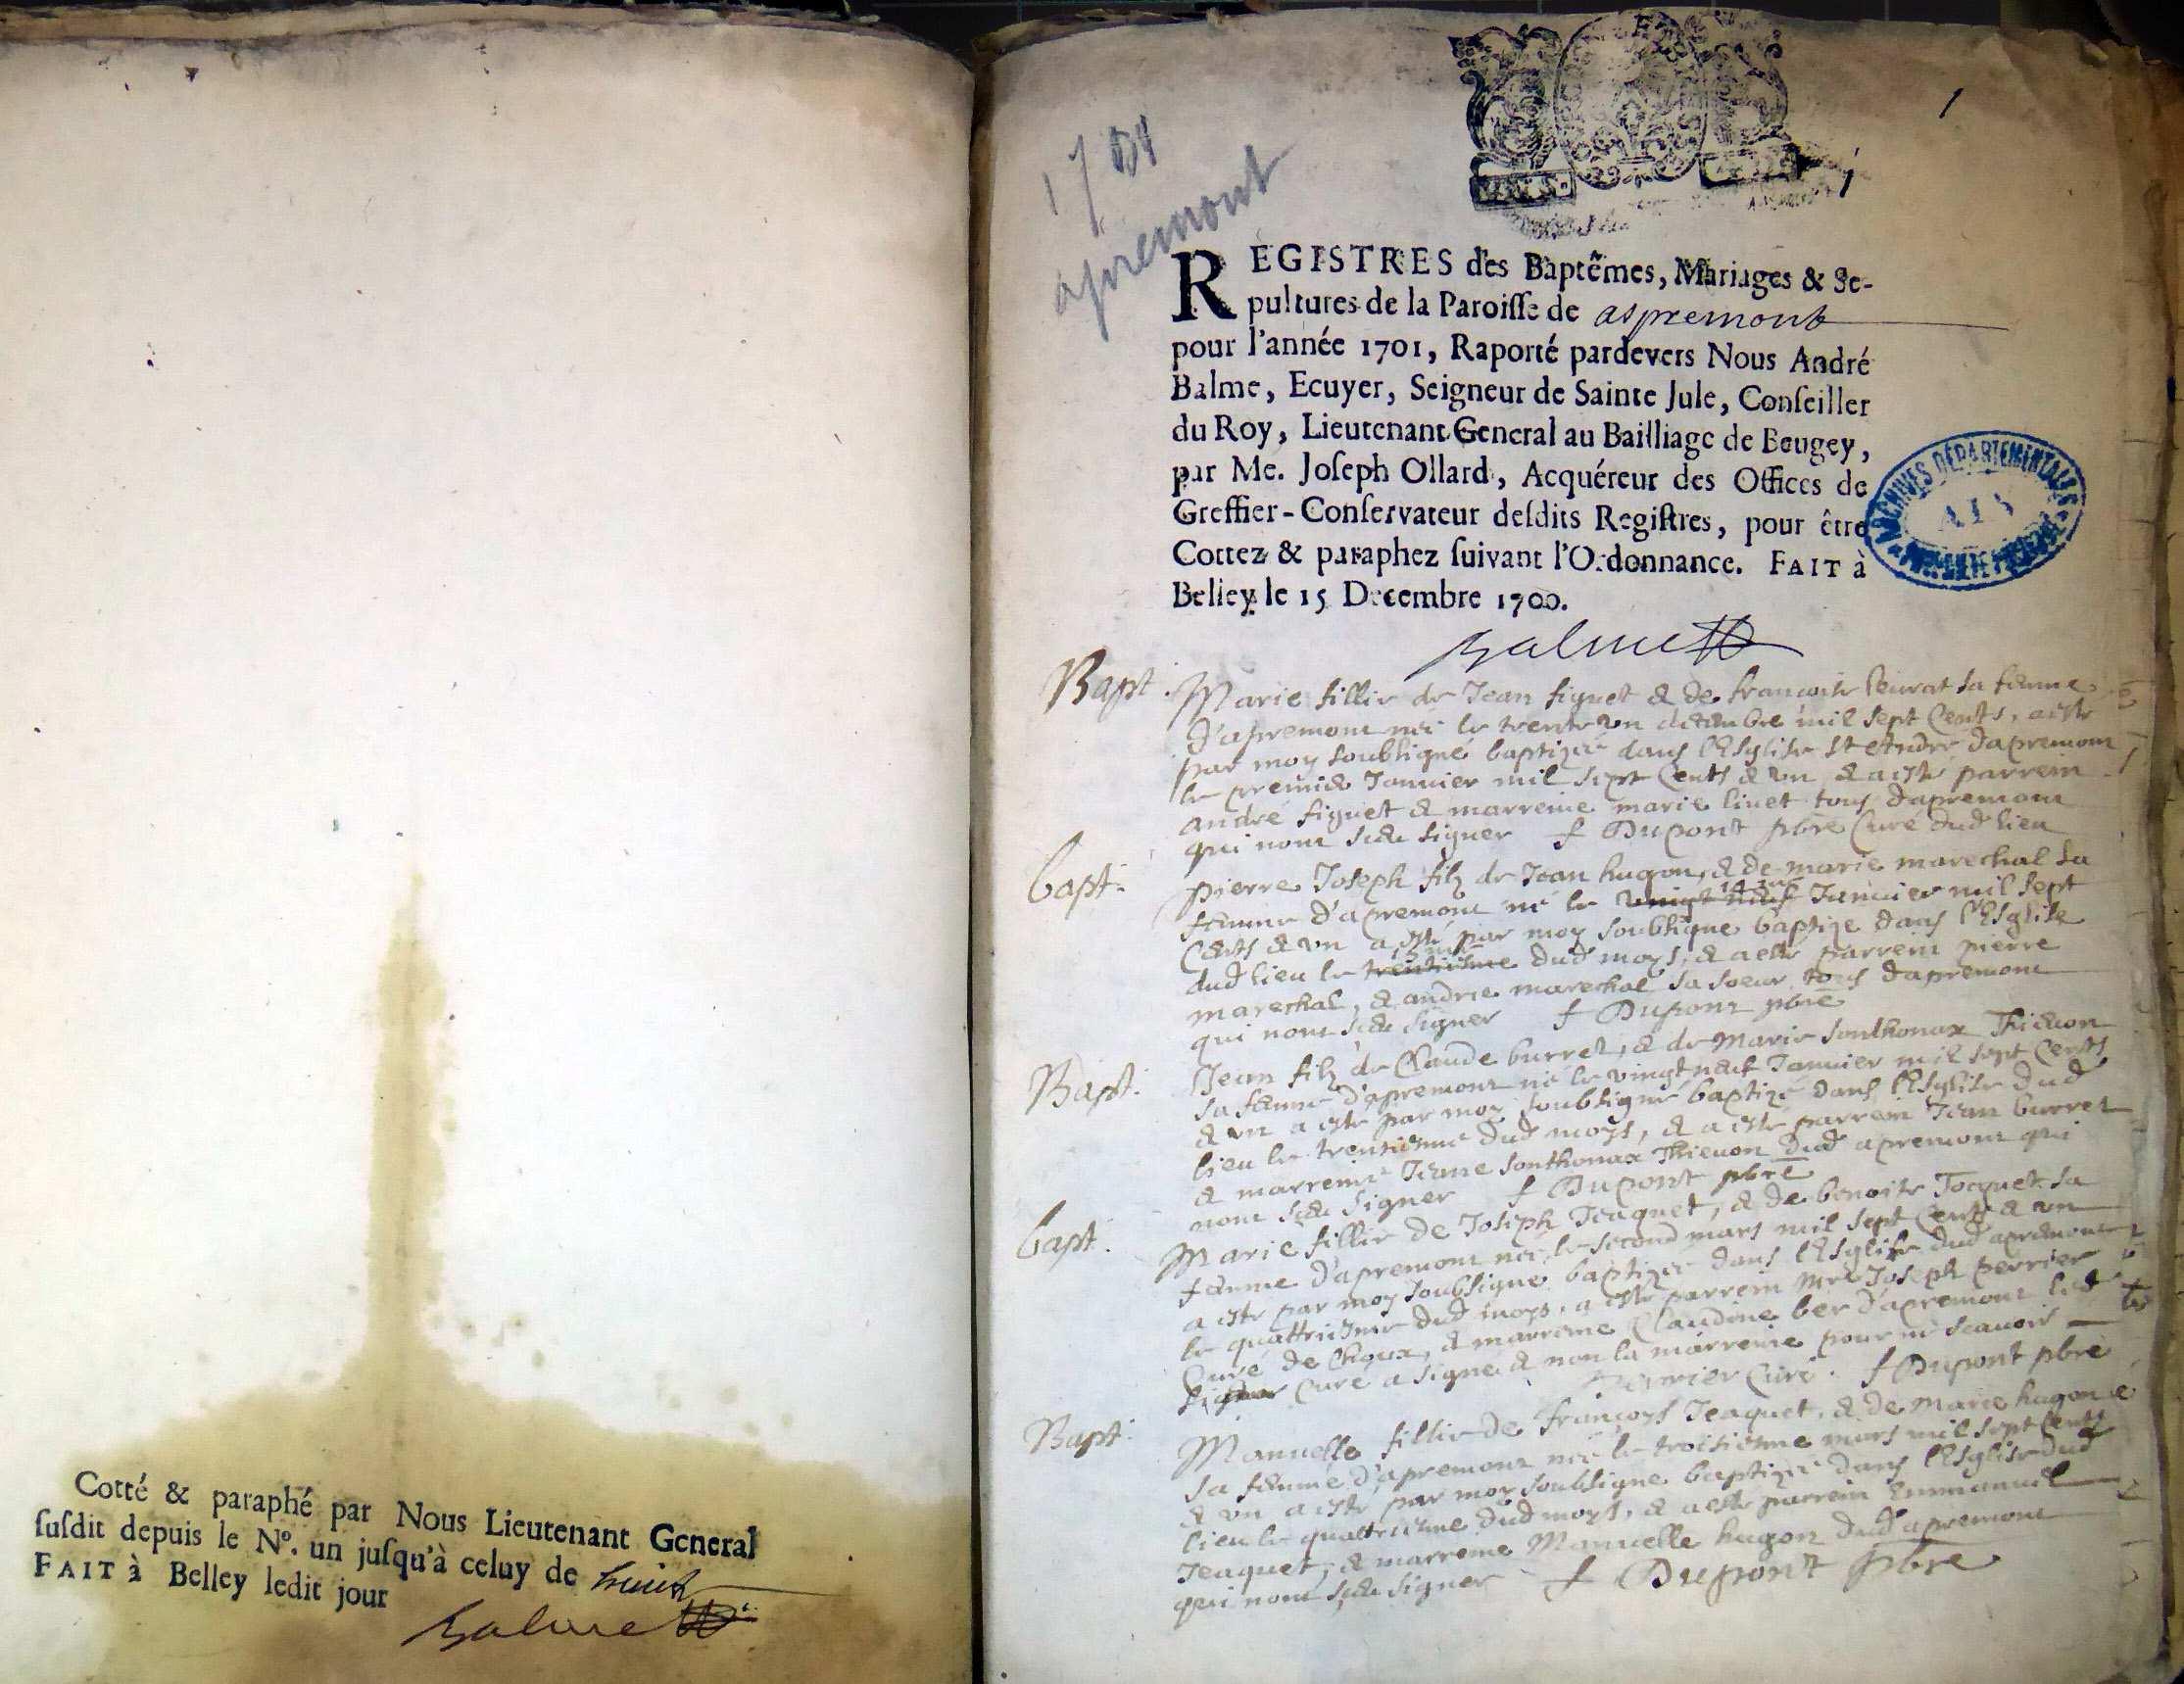 Cotté & paraphé par Nous Lieutenant General
ſuſdit depuis le N°. un juſqu'à celuy de huict
FAIT à Belley ledit jour
Balme
1
1701
apremont
REGISTRES des Baptêmes, Mariages & Se-
pultures de la Paroiſſe de aspremont
pour l'année 1701, Raporté pardevers Nous André
Balme, Ecuyer, Seigneur de Sainte Jule, Conſeiller
du Roy, Lieutenant General au Bailliage de Beugey,
par Me. Joſeph Ollard, Acquéreur des Offices de
Greffier-Conſervateur deſdits Regiſtres, pour être
Cottez & paraphez ſuivant l'Ordonnance. FAIT à
Belley le 15 Decembre 1700.
ARCHIVES DÉPARTEMENTALES
AIN
Balme
Bapt. Marie fillie de Jean figuet & de francoise sa femme
d'apremont née le trente un decembre mil sept Cents, a esté
par moy soubsigné baptizée dans l'Esglise St André dapremont
le premier Januier mil sept Cents & un & a esté parrein
andré figuet & marreine marie liuet tous dapremont
qui nont sceu signer f Dupont pbre Curé dud lieu
bapt. pierre Joseph filz de Jean hugon, & de marie marechal sa
femme d'apremont né le vingt neuf Januier mil sept
Cents & un a esté par moy soubsigné baptizé dans l'Esglise
dud lieu le trentiesme dud moys, & a esté parrein pierre
marechal, & andrée marechal sa soeur tous dapremont
qui nont sceu signer f Dupont pbre
Bapt. Jean filz de Claude burret, & de Marie sonthonax Thieuon
sa femme d'apremont né le vingt neuf Januier mil sept Cents
& un a esté par moy soubsigné baptizé dans l'Esglise dud
lieu le trentiesme dud moys, & a esté parrein Jean burret
& marreine Jeane sonthonax Thieuon dud apremont qui
nont sceu signer f Dupont pbre
bapt. Marie fillie de Joseph Jeaquet, & de benoite Jocquet sa
femme d'apremont née le second mars mil sept Cents & un
a esté par moy soubsigné baptizée dans l'Esglise dud apremont
le quattriesme dud moys, a esté parrein mre Joseph perrier
Curé de Choux, & marreine Claudine ber d'apremont led
Curé a signé & non la marreine pour ne scauoir
perrier Curé. f Dupont pbre
Bapt. Manuelle fillie de françoys Jeaquet, & de Marie hugon
sa femme d'apremont née le troisiesme mars mil sept Cents
& un a esté par moy soubsigné baptizée dans l'Esglise dud
lieu le quattriesme dud moys, & a esté parrein Emmanuel
Jeaquet, & marreine Manuelle hugon dud apremont
qui nont sceu signer f Dupont pbre